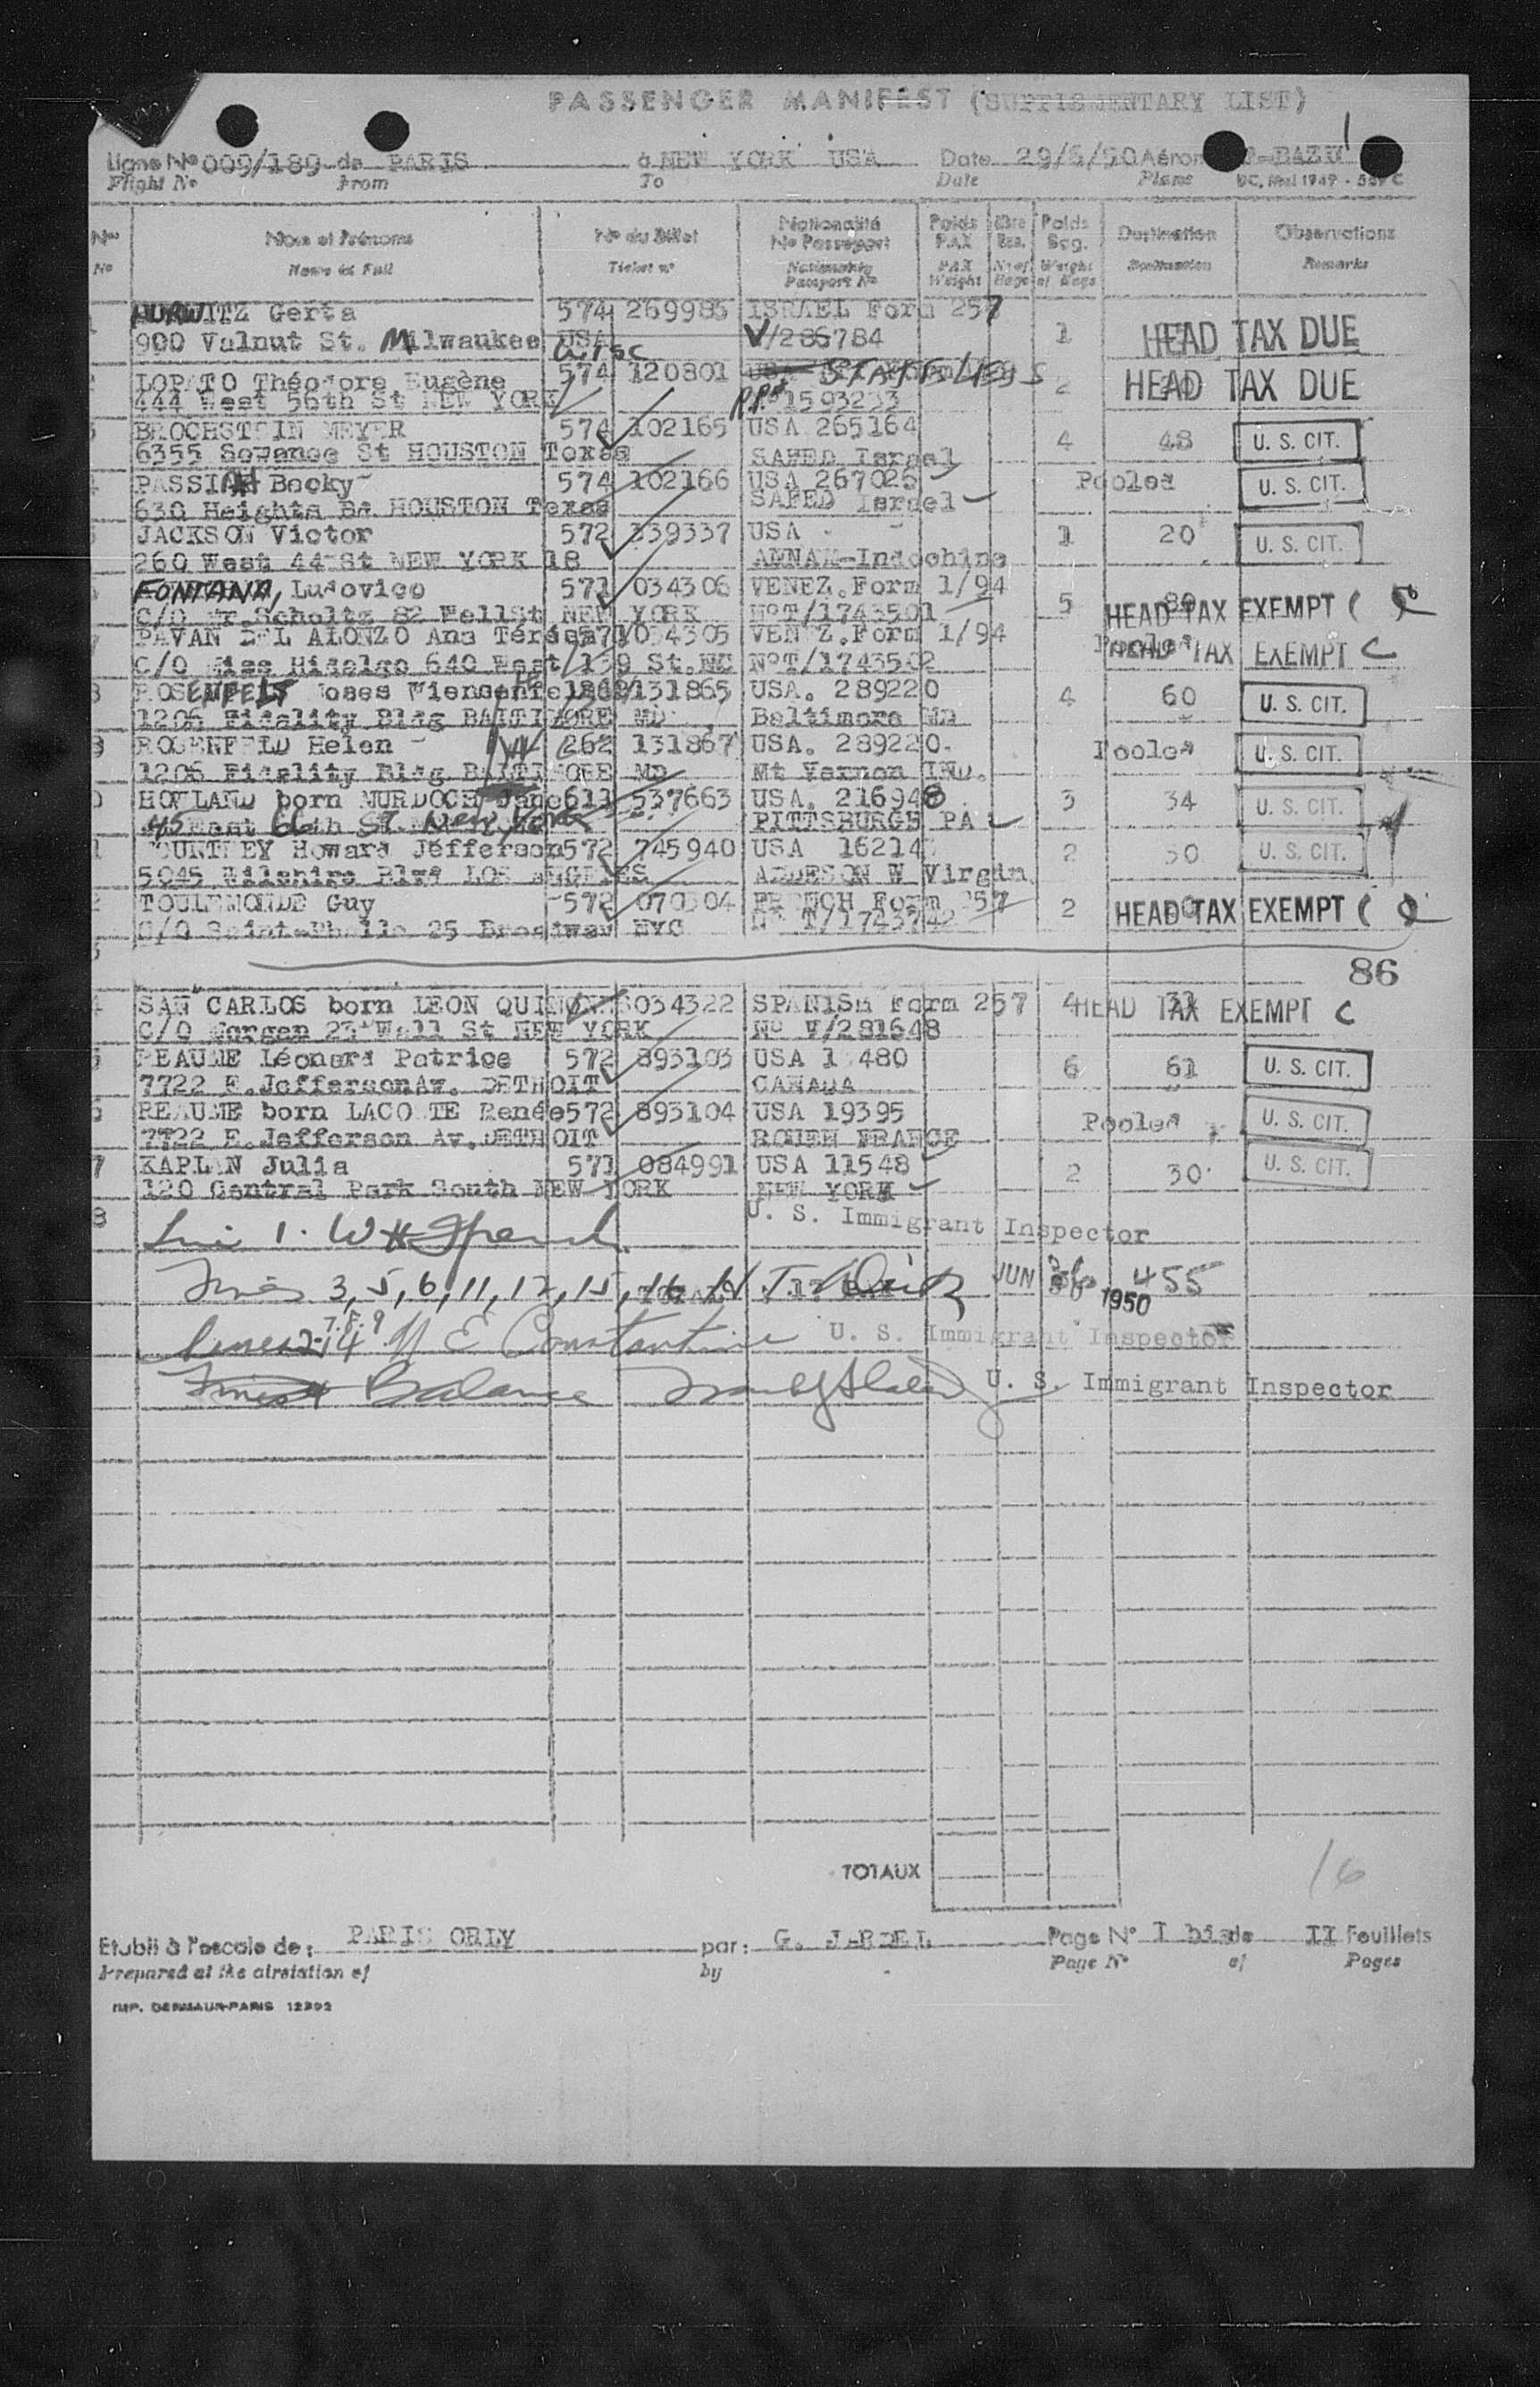 PASSENGER MANIFEST (SUPPLEMENTARY LIST)
Ligne Nº 009/189 de PARIS à NEW YORK USA Date 29/6/50 Aéron
Flight Nº From To Date Plane UC, Mai 1949
Nº Nom et Prénoms Nº du Billet Nationalité Poids Poids Destination Observations
Nº Passeport PAX Bag.
Nº Name in Full Ticket nº Nationality PAX Nr of Weight Destination Remarks
Passport Nº Weight Bags of Bags
HURWITZ Gerta 574 269985 ISRAEL Form 257
900 Walnut St. Milwaukee USA Wisc V/286784 1 HEAD TAX DUE
LOPATO Théodore Eugène 574 120801 STATELESS 2 HEAD TAX DUE
444 West 56th St NEW YORK P.P.# 1593233
BROCHSTEIN MEYER 574 102165 USA 265164 4 48 U. S. CIT.
6355 HOUSTON Texas SAFED Israel
Becky 574 102166 USA 267026 Pooled U. S. CIT.
630 Heights Bd HOUSTON Texas SAFED Israel
JACKSON Victor 572 339337 USA 1 20 U. S. CIT.
260 West 44 St NEW YORK 18 ANNAM-Indochine
FONTANA, Ludovico 571 034306 VENEZ. Form 1/94 5 HEAD TAX EXEMPT
C/O Mr. Scholtz 82 Wall St NEW YORK NºT/1743501
PAVAN DEL ALONZO Ana Térésa 571 034305 VENEZ. Form 1/94 Pooled HEAD TAX EXEMPT C
C/O Miss Hidalgo 640 West 139 St. NC NºT/1743502
ROSENFELT Moses 131865 USA. 289220 4 60 U. S. CIT.
1206 Fidality Bldg BALTIMORE MD Baltimore MD
ROSENFELD Helen 262 131867 USA. 289220. Pooled U. S. CIT.
1206 Fidality Bldg BALTIMORE MD Mt Vernon IND.
HOWLAND born MURDOCH Jane 611 537663 USA. 216948 3 34 U. S. CIT.
45 East 66th St. New York PITTSBURGH PA
Howard Jefferson 572 745940 USA 16214 2 30 U. S. CIT.
5045 Wilshire Blvd LOS ANGELES ADDESON W Virgin.
TOULEMONDE Guy 572 FRENCH Form 257 2 HEAD TAX EXEMPT
C/O Saint-Phalle 25 Broadway NYC Nº T/1743742
86
SAN CARLOS born LEON 034322 SPANISH Form 257 4 HEAD TAX EXEMPT C
C/O Morgan 23 Wall St NEW YORK Nº V/281648
REAUME Léonard Patrice 572 893103 USA 480 6 61 U. S. CIT.
7722 E. Jefferson Av. DETROIT CANADA
REAUME born LACOSTE Renée 572 893104 USA 19395 Pooled U. S. CIT.
7722 E. Jefferson Av. DETROIT ROUEN FRANCE
7 KAPLAN Julia 571 084991 USA 11548 2 30 U. S. CIT.
120 Central Park South NEW YORK NEW YORK
8 U. S. Immigrant Inspector
Line 1.
Lines 3, 5, 6, 11, 12, 15, 16 JUN 1950 455
7. 8. 9
Lines 2-14 N E Constantine U. S. Immigrant Inspector
Balance U. S. Immigrant Inspector
TOTAUX
16
Etabli à l'escale de: PARIS ORLY par: G. JARDEL Page Nº I bis de II Feuillets
Prepared at the airstation of by Page Nº of Pages
IMP. DERMAUR-PARIS 12392